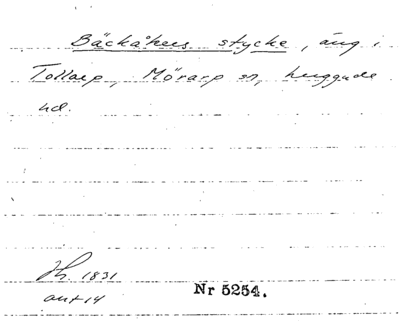 Bäckåkers stycke, äng i
Tollarp, Mörarp sn, Luggude
hd.
1831
akt 14
Nr 5254.